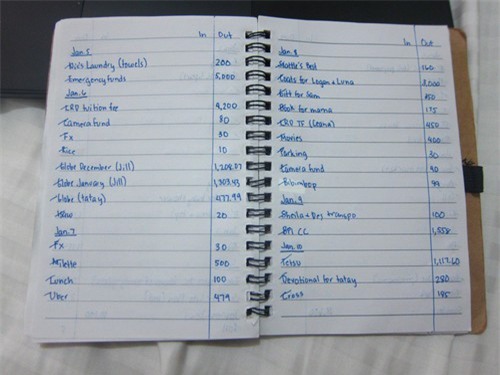 In Out
Jan. 5
Laundry (towels) 200
Emergency funds 5,000
Jan. 6
CRP tuition fee 4,200
Camera fund 80
Fx 30
Rice 10
Globe December (Jill) 1,208.07
Globe January (Jill) 1,303.43
Globe (tatay) 477.99
20
Jan. 7
Fx 30
500
Lunch 100
Uber 479
In Out
Jan. 8
Best 160
for Logan + Luna 2,000
Gift for Sam 150
Book for mama 175
CRP TF (Ceana) 450
Movies 400
Parking 30
Camera fund 90
Bibimbap 99
Jan. 9
Sheila + Des transpo 100
BPI CC 1,558
Jan. 10
Tetsu 1,117.60
Devotional for tatay 280
Cross 185